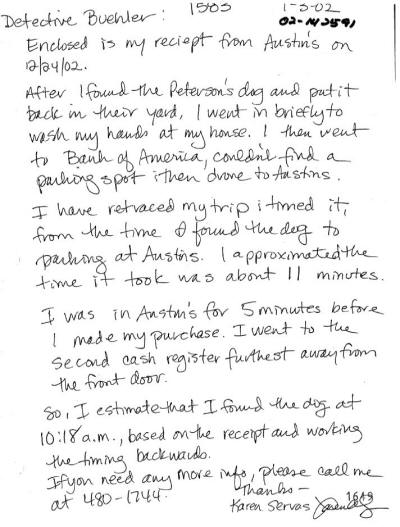 1503 1-3-02
Detective Buehler: 02-142591
Enclosed is my reciept from Austin's on
12/24/02.
After I found the Peterson's dog and put it
back in their yard, I went in briefly to
wash my hands at my house. I then went
to Bank of America, couldn't find a
parking spot & then drove to Austins.
I have retraced my trip & timed it,
from the time I found the dog to
parking at Austins. I approximated the
time it took was about 11 minutes.
I was in Austin's for 5 minutes before
I made my purchase. I went to the
second cash register furthest away from
the front door.
So, I estimate that I found the dog at
10:18 a.m., based on the receipt and working
the timing backwards.
If you need any more info, please call me
at 480-1744. Thanks-
Karen Servas 1649